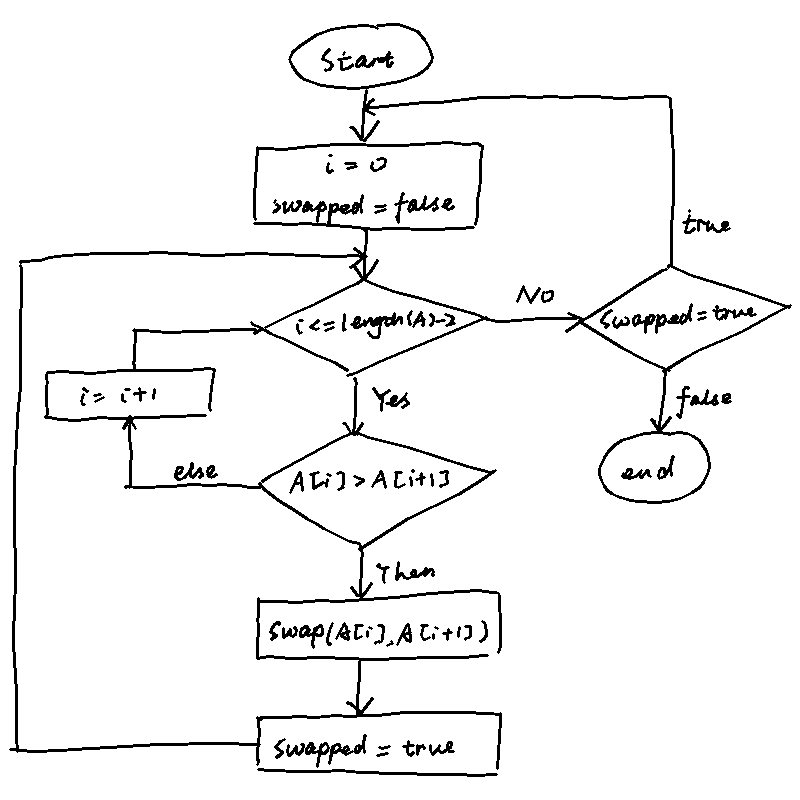 Start
i = 0
swapped = false
true
i <= length(A)-2
No
swapped = true
i = i+1
Yes
false
else
A[i] > A[i+1]
end
Then
swap(A[i], A[i+1])
swapped = true